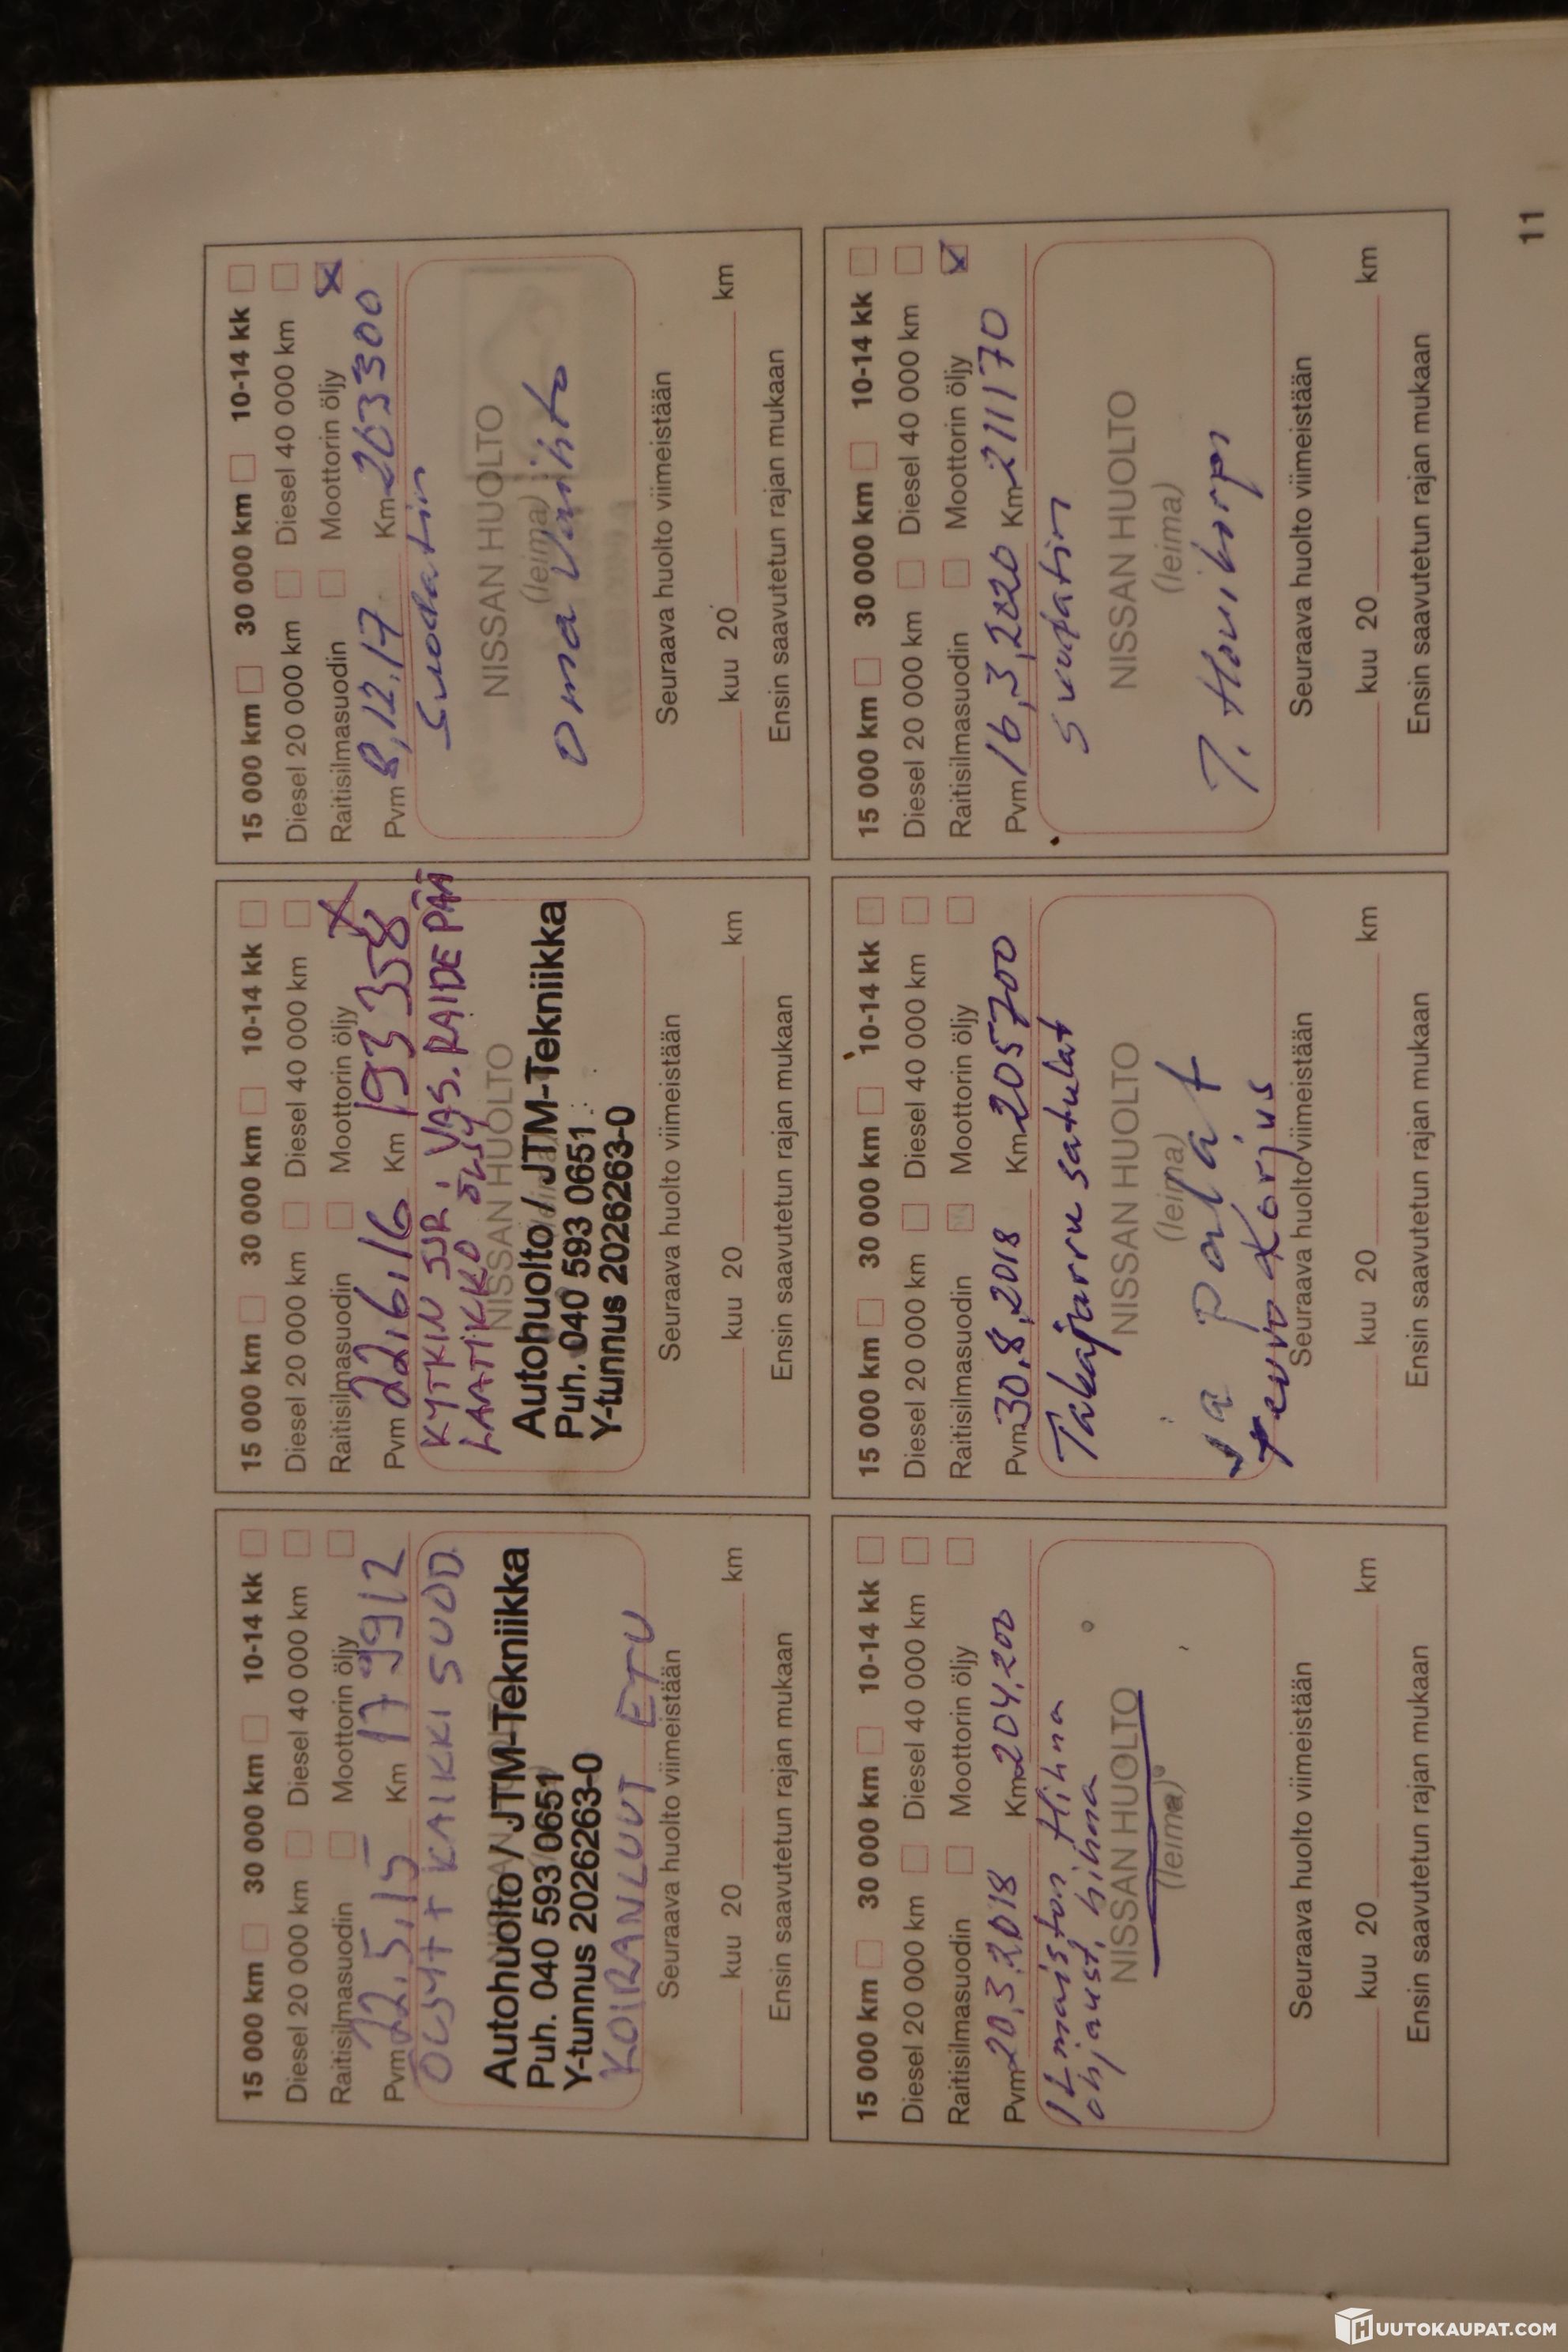 15 000 km 30 000 km 10-14 kk
Diesel 20 000 km Diesel 40 000 km
Raitisilmasuodin Moottorin öljy
Pvm 22.5.15 Km 179912
ÖLJYT + KAIKKI SUOD.
NISSAN HUOLTO
Autohuolto / JTM-Tekniikka
Puh. 040 593 0651
Y-tunnus 2026263-0
KOIRANLUUT ETU
Seuraava huolto viimeistään
kuu 20 km
Ensin saavutetun rajan mukaan
15 000 km 30 000 km 10-14 kk
Diesel 20 000 km Diesel 40 000 km
Raitisilmasuodin Moottorin öljy X
Pvm 22.6.16 Km 193358
KYTKIN SJR. VAS. RAIDE PÄÄ
LAATIKKO ÖLJY
NISSAN HUOLTO
Autohuolto / JTM-Tekniikka
Puh. 040 593 0651
Y-tunnus 2026263-0
Seuraava huolto viimeistään
kuu 20 km
Ensin saavutetun rajan mukaan
15 000 km 30 000 km 10-14 kk
Diesel 20 000 km Diesel 40 000 km
Raitisilmasuodin Moottorin öljy X
Pvm 8,12,17 Km 203300
Suodatin
NISSAN HUOLTO
(leima)
Oma
Seuraava huolto viimeistään
kuu 20 km
Ensin saavutetun rajan mukaan
15 000 km 30 000 km 10-14 kk
Diesel 20 000 km Diesel 40 000 km
Raitisilmasuodin Moottorin öljy
Pvm 20,3,2018 Km 204,200
ILmaiston Hihna
ohjaust, hihna
NISSAN HUOLTO
(leima)
Seuraava huolto viimeistään
kuu 20 km
Ensin saavutetun rajan mukaan
15 000 km 30 000 km 10-14 kk
Diesel 20 000 km Diesel 40 000 km
Raitisilmasuodin Moottorin öljy
Pvm 30.8,2018 Km 205700
Takajarru satulat
NISSAN HUOLTO
(leima)
ja palat
Korjus
Seuraava huolto viimeistään
kuu 20 km
Ensin saavutetun rajan mukaan
15 000 km 30 000 km 10-14 kk
Diesel 20 000 km Diesel 40 000 km
Raitisilmasuodin Moottorin öljy X
Pvm 16,3,2020 Km 211170
suodatin
NISSAN HUOLTO
(leima)
T.
Seuraava huolto viimeistään
kuu 20 km
Ensin saavutetun rajan mukaan
11
HUUTOKAUPAT.COM